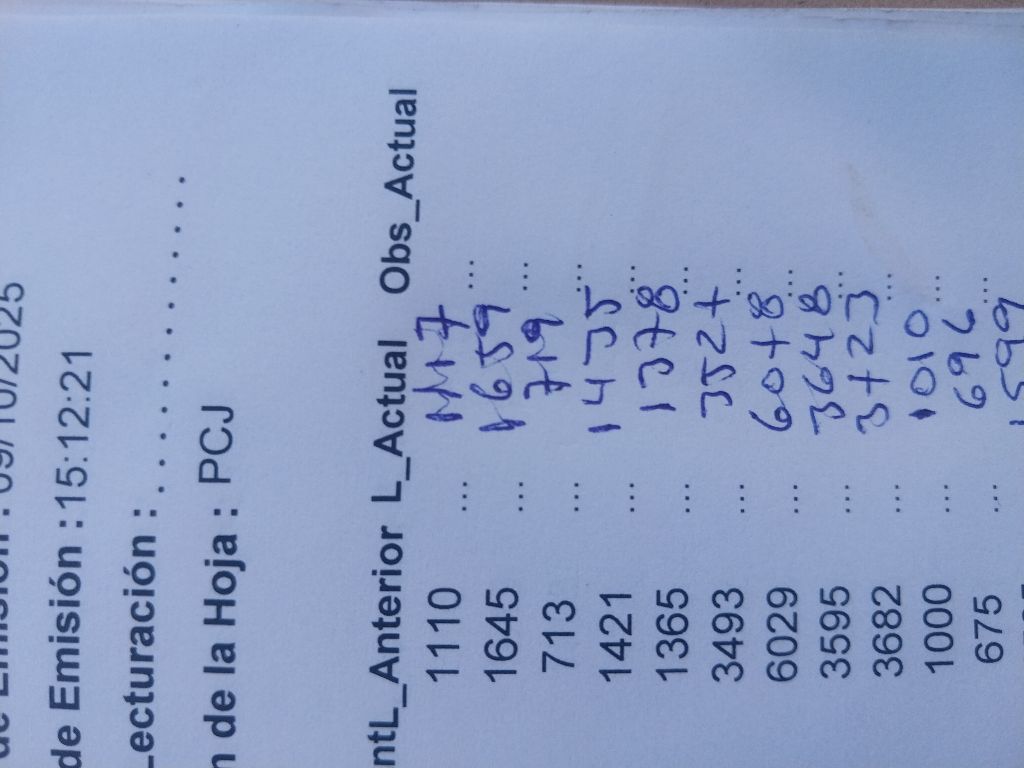 de Emisión : 09/10/2025
de Emisión : 15:12:21
Lecturación : ....................
n de la Hoja : PCJ
ntL_Anterior L_Actual Obs_Actual
1110 ... 1117 ...
1645 ... 1659 ...
713 ... 719
1421 ... 1435 ...
1365 ... 1378 ...
3493 ... 3527 ...
6029 ... 6078 ...
3595 ... 3648 ...
3682 ... 3723 ...
1000 ... 1010 ...
675 ... 696 ...
1599